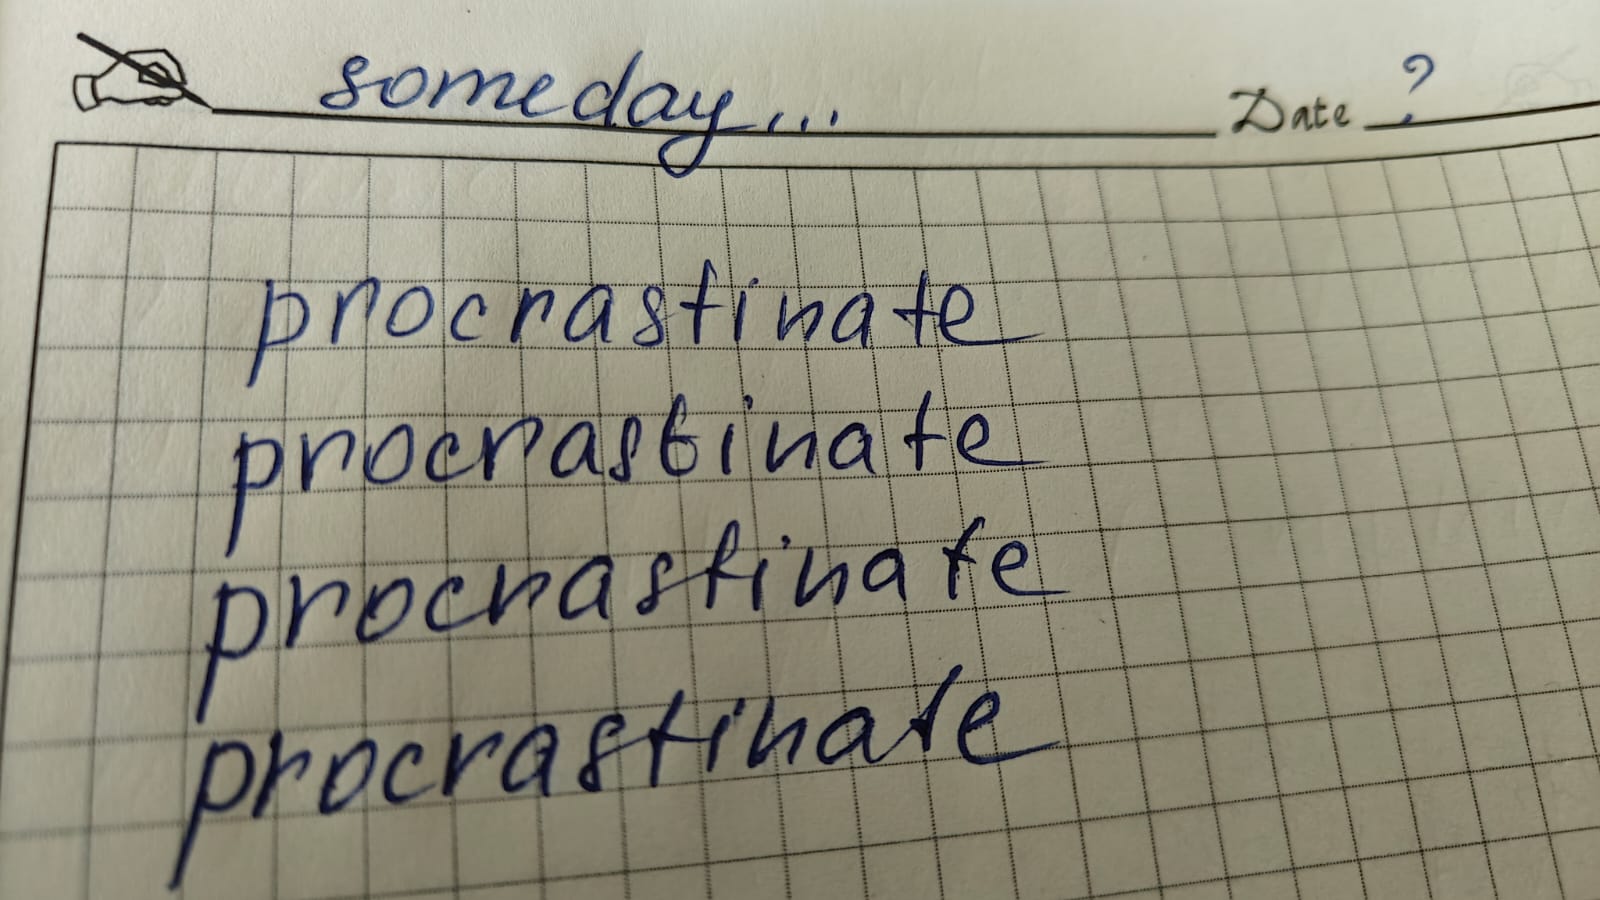 someday... Date ?
procrastinate
procrastinate
procrastinate
procrastinate